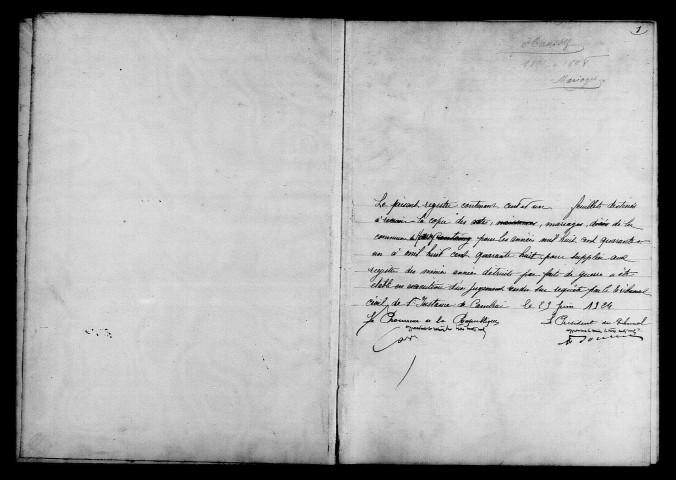 1
Mariages
Le présent registre contenant cent et un feuillets destinés
à recevoir la copie des actes, naissances, mariages, décès de la
commune de pour les années mil huit cent quarante
un à mil huit cent quarante huit pour suppléer aux
registres des mêmes années détruits par faits de guerre a été
établi en exécution d'un jugement rendu sur requête par le tribunal
civil de 1re Instance de Cambrai le 29 Juin 1924
Le Procureur de la République
Le Président du Tribunal